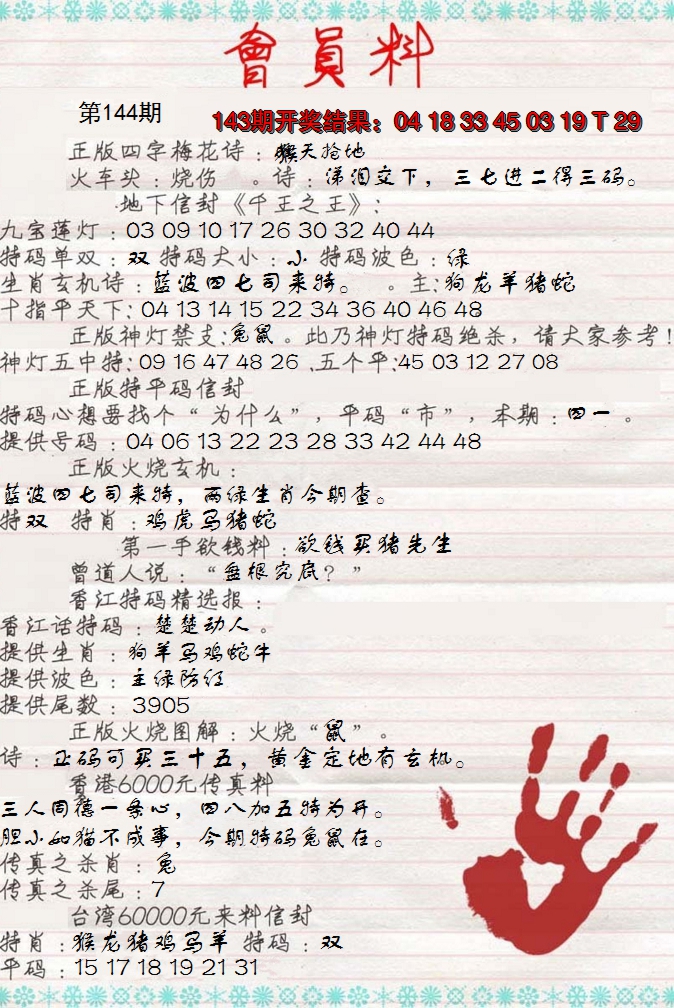 會員料
第144期
143期开奖结果：04 18 33 45 03 19 T 29
正版四字梅花诗：猴天抢地
火车头：烧伤 。诗：涕泪交下，三七进二得三码。
地下信封《千王之王》：
九宝莲灯：03 09 10 17 26 30 32 40 44
特码单双：双 特码大小：小 特码波色：绿
生肖玄机诗：蓝波四七司来特。 。主:狗龙羊猪蛇
十指平天下: 04 13 14 15 22 34 36 40 46 48
正版神灯禁支:兔鼠。此乃神灯特码绝杀，请大家参考!
神灯五中特:09 16 47 48 26 .五个平:45 03 12 27 08
正版特平码信封
特码心想要找个“为什么”，平码“市”，本期：四一。
提供号码：04 06 13 22 23 28 33 42 44 48
正版火烧玄机：
蓝波四七司来特，两绿生肖今期查。
特双 特肖：鸡虎马猪蛇
第一手欲钱料：欲钱买猪先生
曾道人说：“盘根究底？”
香江特码精选报：
香江话特码：楚楚动人。
提供生肖：狗羊马鸡蛇牛
提供波色：主绿防红
提供尾数：3905
正版火烧图解：火烧“鼠”。
诗：正码可买三十五，黄金定地有玄机。
香港6000元传真料
三人同德一条心，四八加五特为开。
胆小如猫不成事，今期特码兔鼠在。
传真之杀肖：兔
传真之杀尾：7
台湾60000元来料信封
特肖：猴龙猪鸡马羊 特码：双
平码：15 17 18 19 21 31